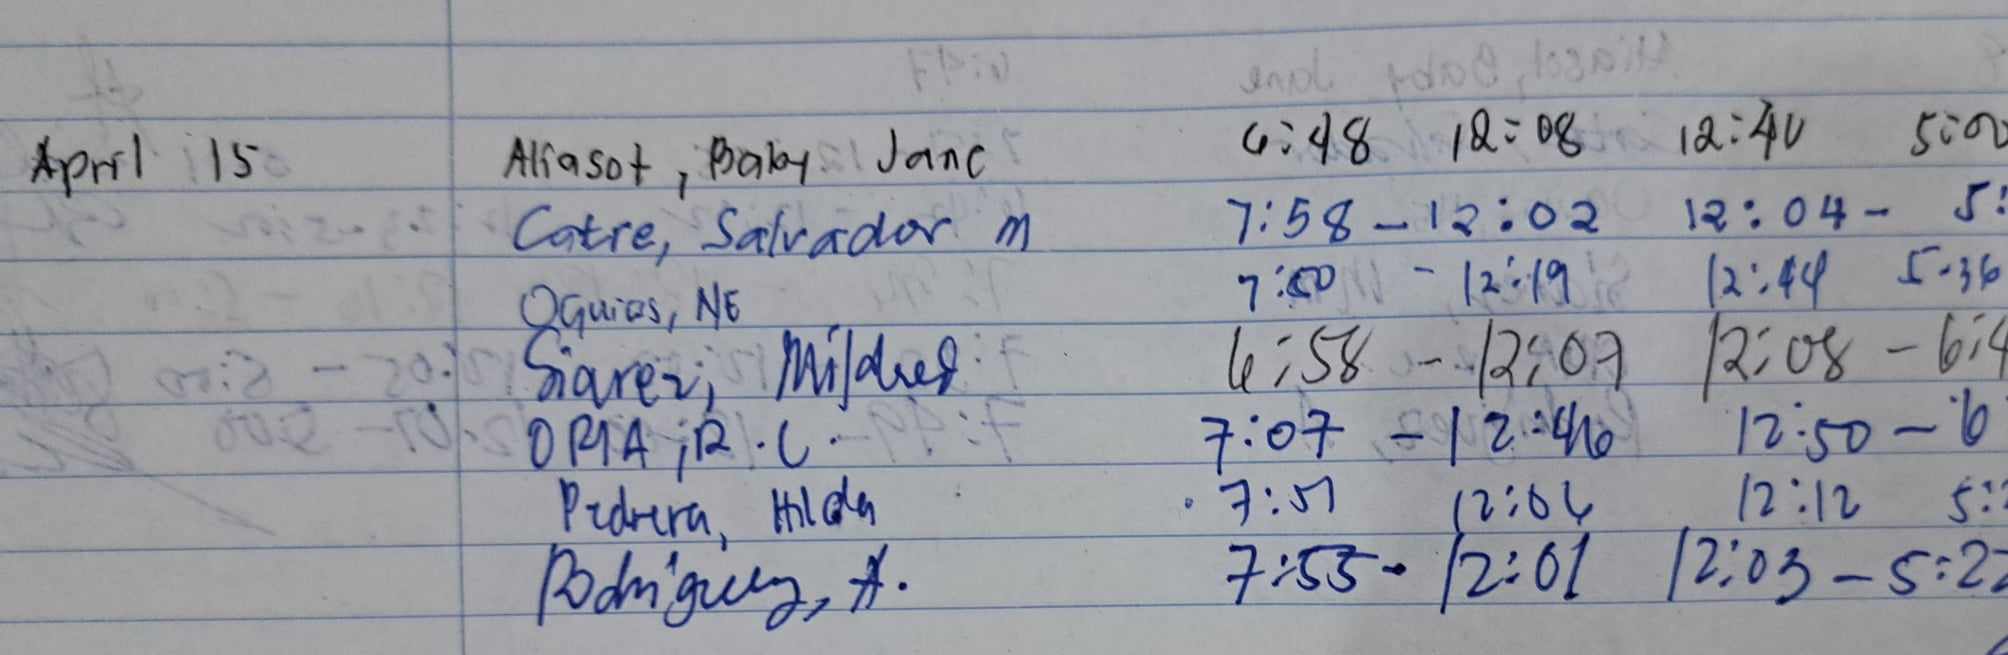 April 15 Aliasot, Baby Jane 6:48 12:08 12:40 5:0
Catre, Salvador M 7:58 - 12:02 12:04 - 5:
Oguias, NE 7:50 - 12:19 12:44 5:36
Siarez, Mildred 6:58 - 12:07 12:08 - 6:4
ORIA, R.C. 7:07 - 12:46 12:50 - 6
Pedrera, Hilda 7:51 12:06 12:12 5:
Rodriguez, A. 7:55 - 12:01 12:03 - 5:22